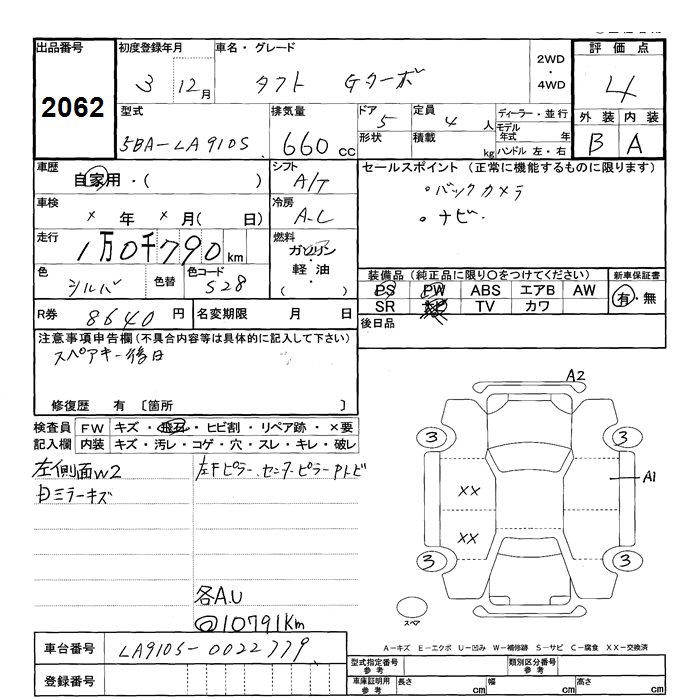 出品番号 初度登録年月 車名・グレード 評価点
2062 3 12月 タフト Gターボ 2WD・4WD 4
型式 排気量 ドア 定員 ディーラー・並行 外装 内装
5BA-LA910S 660cc 5 4人 モデル年式 年 B A
形状 積載 kg ハンドル 左・右
車歴 シフト セールスポイント(正常に機能するものに限ります)
自家用・( ) A/T ・バックカメラ
車検 冷房 ・ナビ
×年 ×月( 日) A-C
走行 燃料
1万0千790km ガソリン・軽油・( )
色 色替 色コード 装備品(純正品に限り○をつけてください) 新車保証書
シルバ S28 PS PW ABS エアB AW 有・無
SR TV カワ
R券 8640円 名変期限 月 日 後日品
注意事項申告欄(不具合内容等は具体的に記入して下さい)
スペアキー後日
修復歴 有 〔箇所 〕
検査員 FW キズ・飛石・ヒビ割・リペア跡・×要
記入欄 内装 キズ・汚レ・コゲ・穴・スレ・キレ・破レ
左側面W2 左Fピラー、センターピラーアトビ
ミラーキズ
各A.U
@10791km
A2
3 3
XX A1
XX
3 3
スペア
A-キズ E-エクボ U-凹み W-補修跡 S-サビ C-腐食 XX-交換済
車台番号 LA910S-0022779
登録番号
型式指定番号 参考 類別区分番号 参考
車庫証明用 参考 長さ cm 幅 cm 高さ cm